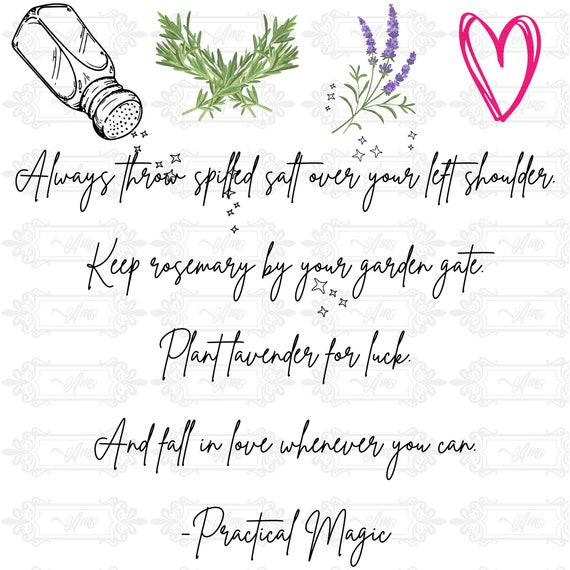 Always throw spilled salt over your left shoulder.
Keep rosemary by your garden gate.
Plant lavender for luck.
And fall in love whenever you can.
-Practical Magic